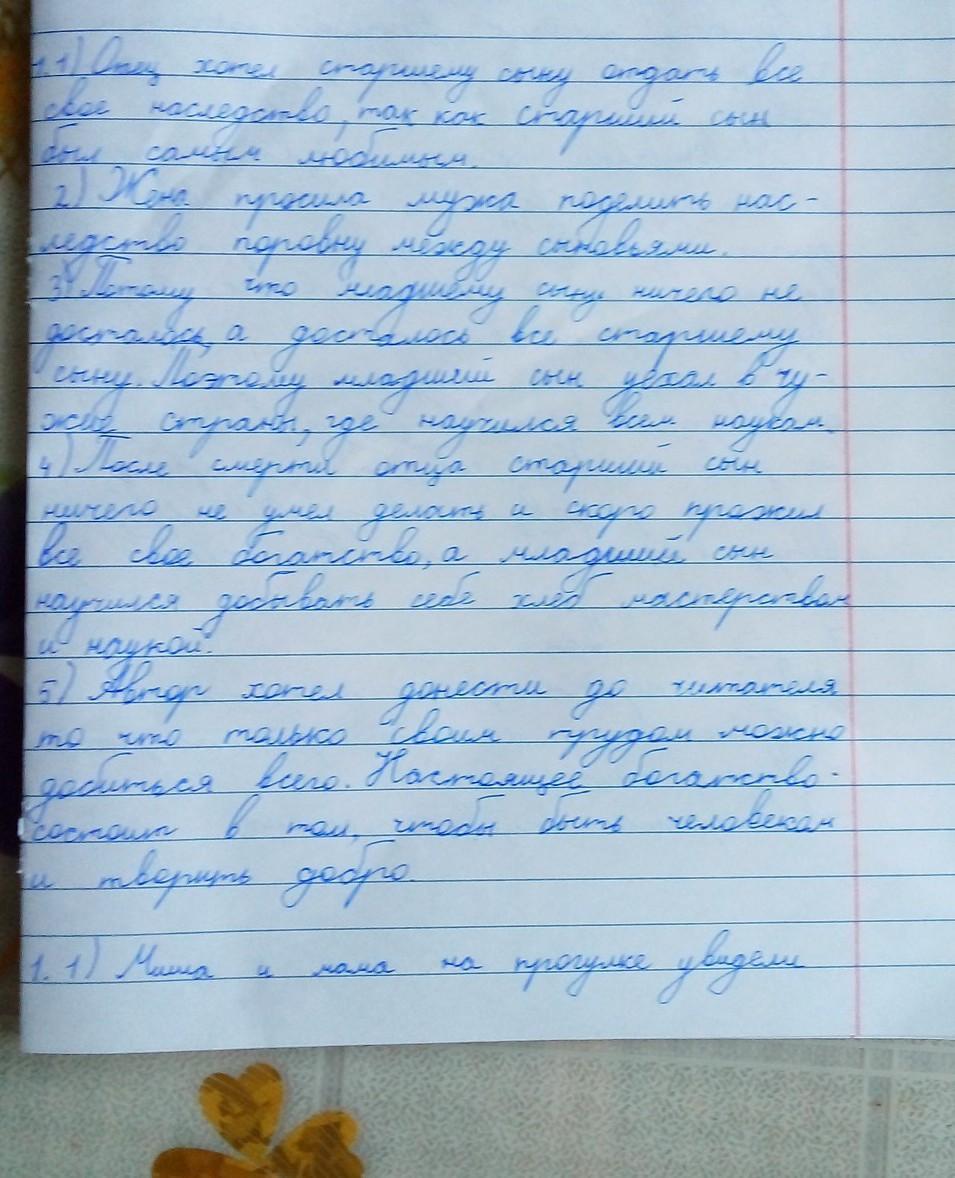 1.1) Отец хотел старшему сыну отдать все
свое наследство, так как старший сын
был самым любимым.
2) Жена просила мужа поделить нас-
ледство поровну между сыновьями.
3) Потому что младшему сыну ничего не
досталось, а досталось все старшему
сыну. Поэтому младший сын уехал в чу-
жие страны, где научился всем наукам.
4) После смерти отца старший сын
ничего не умел делать и скоро прожил
все свое богатство, а младший сын
научился добывать себе хлеб мастерством
и наукой.
5) Автор хотел донести до читателя
то что только своим трудом можно
добиться всего. Настоящее богатство -
состоит в том, чтобы быть человеком
и творить добро.
1. 1) Миша и мама на прогулке увидели